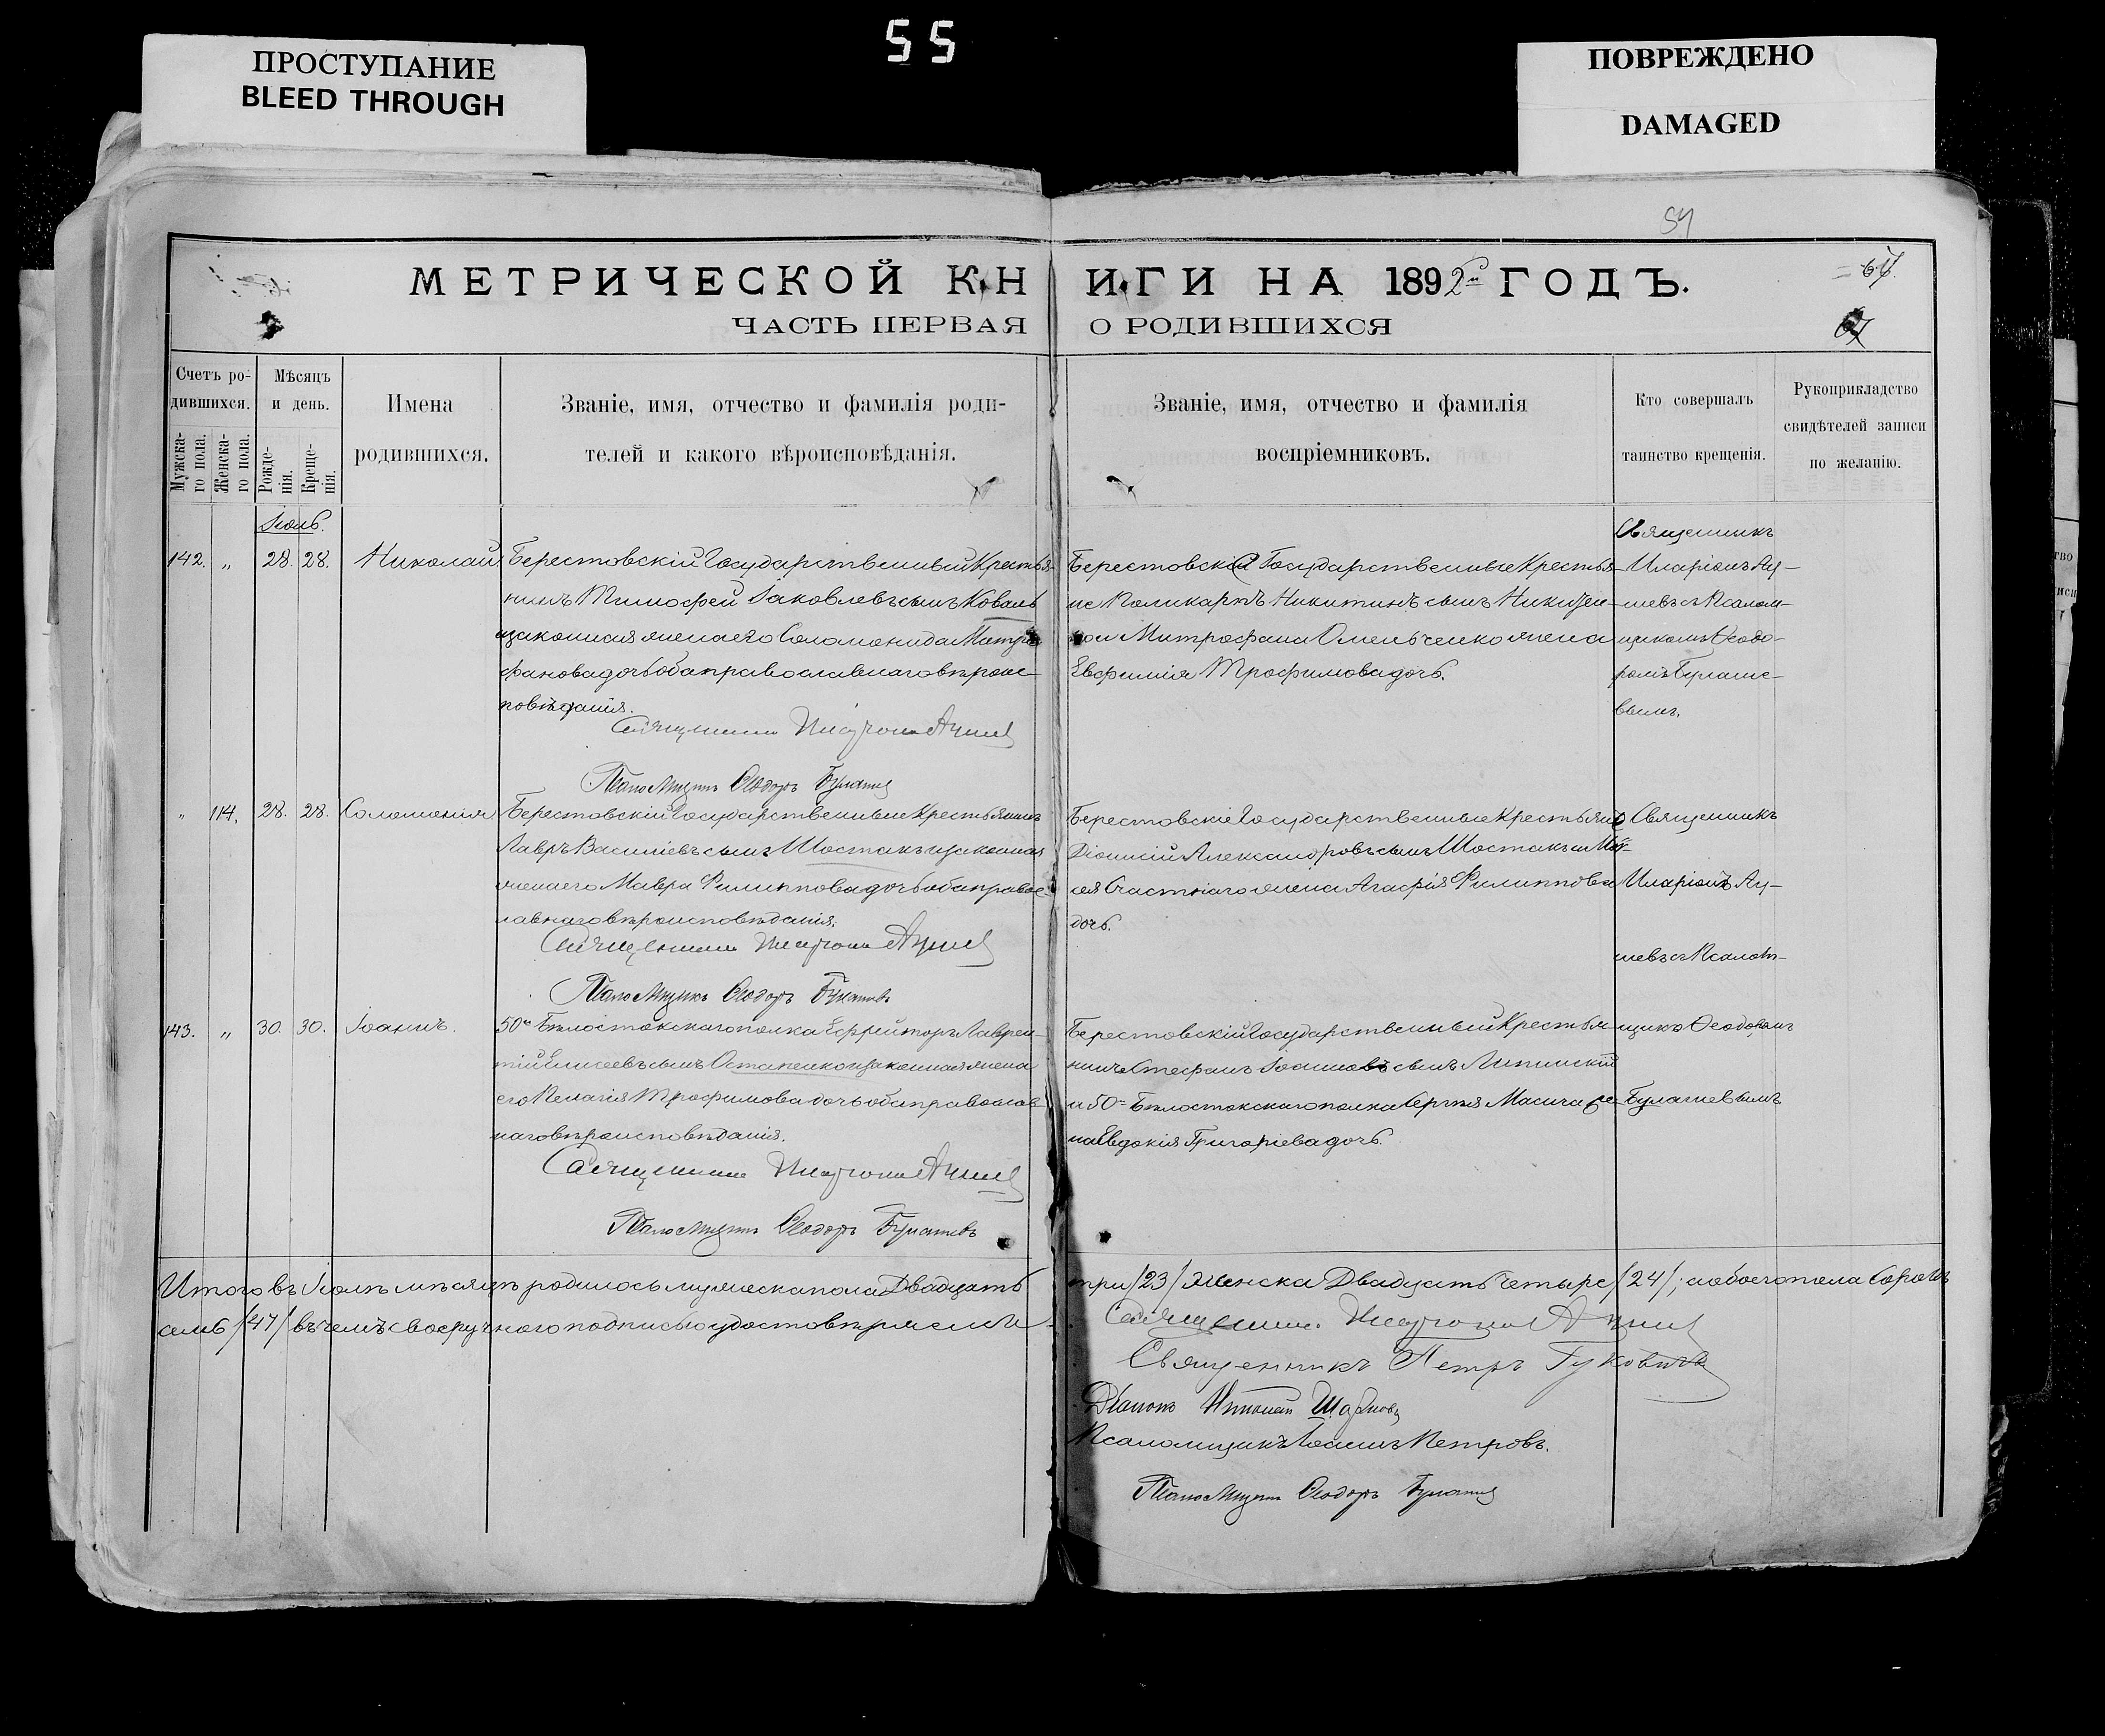 55
ПРОСТУПАНИЕ
BLEED THROUGH
ПОВРЕЖДЕНО
DAMAGED
54
МЕТРИЧЕСКОЙ КНИГИ НА 1892й ГОДЪ.
ЧАСТЬ ПЕРВАЯ О РОДИВШИХСЯ
Счетъ ро-
дившихся.
Мужска-
го пола.
Женска-
го пола.
Мѣсяцъ
и день.
Рожде-
нія.
Креще-
нія.
Имена
родившихся.
Званіе, имя, отчество и фамилія роди-
телей и какого вѣроисповѣданія.
Званіе, имя, отчество и фамилія
воспріемниковъ.
Кто совершалъ
таинство крещенія.
Рукоприкладство
свидѣтелей записи
по желанію.
Іюль.
142. „ 28. 28. Николай
Берестовскій Государственный Крестья-
нинъ Тимофей Іаковлевъ сынъ Коваль
и законная жена его Соломонида Митро-
фанова дочь оба православнаго вѣроис-
повѣданія.
Священникъ Иларіонъ
Псаломщикъ Ѳеодоръ
Берестовскіе Государственные Крестья-
не Поликарпъ Никитинъ сынъ
и Митрофана Омельченко жена
Евфимія Трофимова дочь.
Священникъ
Иларіонъ
съ Псалом-
щикомъ Ѳеодо-
ромъ
вымъ.
„ 114. 28. 28. Соломонія
Берестовскій Государственные Крестьянинъ
Лавръ Василіевъ сынъ Шостакъ и законная
жена его Мавра Филиппова дочь оба правос-
лавнаго вѣроисповѣданія.
Священникъ Иларіонъ
Псаломщикъ Ѳеодоръ
Берестовскіе Государственные Крестьяне
Діонисій Александровъ сынъ Шостакъ и
жена Агафія Филиппова
дочь.
Священникъ
Иларіонъ
съ Псалом-
143. „ 30. 30. Іоаннъ.
50го Бѣлостокскаго полка Ефрейторъ Лаврен-
тій Елисеевъ сынъ Остапенко и законная жена
его Пелагія Трофимова дочь оба православ-
наго вѣроисповѣданія.
Священникъ Иларіонъ
Псаломщикъ Ѳеодоръ
Берестовскій Государственный Крестья-
нинъ Стефанъ Іоанновъ сынъ Липинскій
и 50го Бѣлостокскаго полка Сергѣя Масича же-
на Евдокія Григоріева дочь.
щикомъ Ѳеодоромъ
Итого въ Іюлѣ мѣсяцѣ родилось мужеска пола Двадцать три /23/ женска Двадцать четыре /24/; а обоего пола Сорокъ
семь /47/ въ чемъ своеручною подписью удостовѣряемъ
Священникъ Иларіонъ
Священникъ Петръ
Діаконъ Николай
Псаломщикъ Іоаннъ Петровъ.
Псаломщикъ Ѳеодоръ